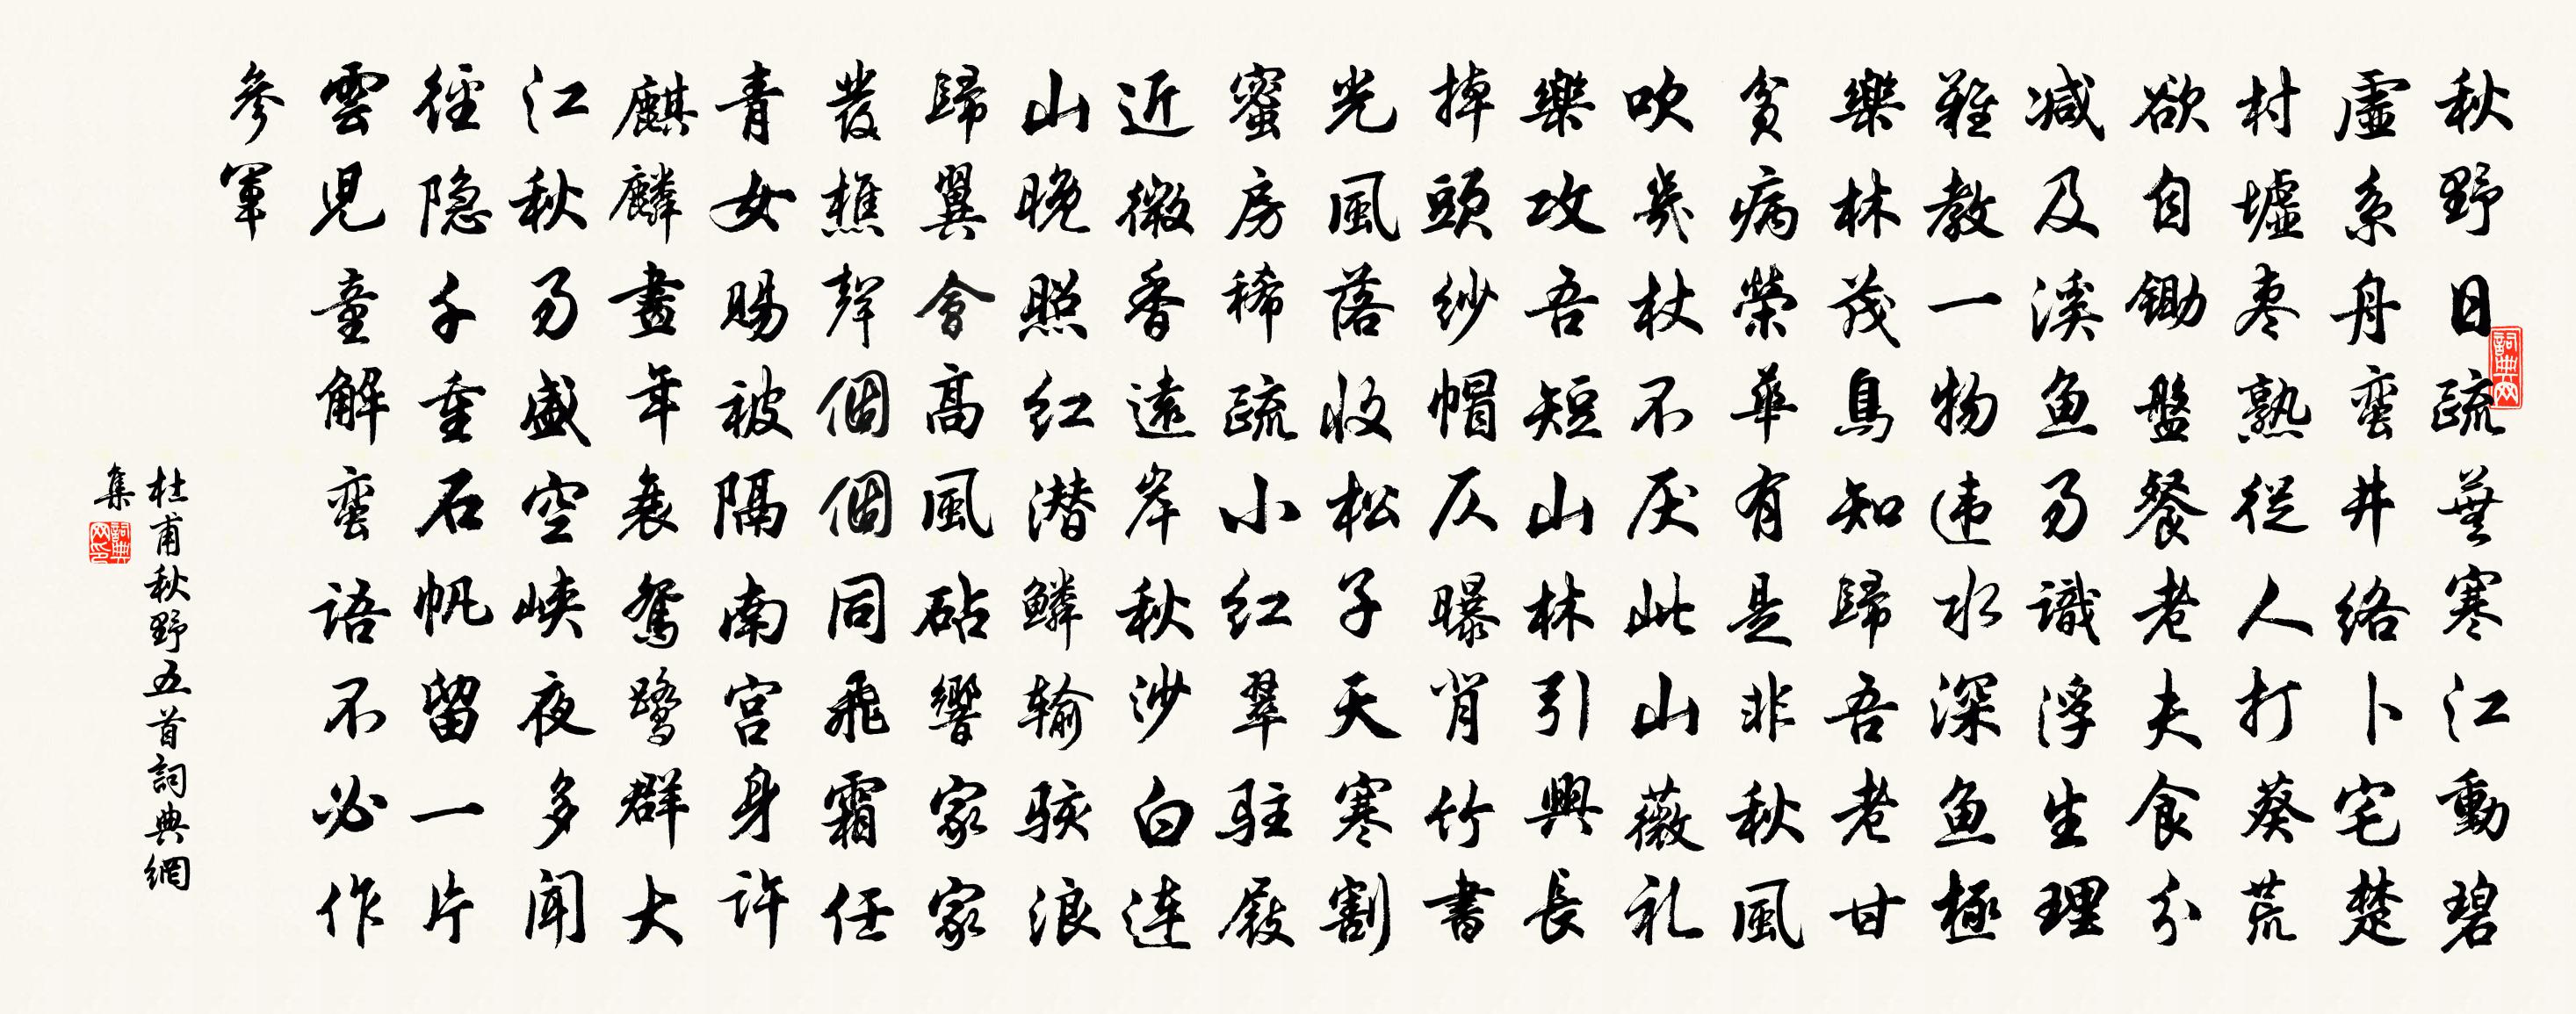 秋野日疏蕪寒江動碧
虛系舟蛮井络卜宅楚
村墟枣熟從人打葵荒
欲自锄盤餐老夫食分
减及溪鱼易識浮生理
難教一物违水深鱼極
樂林茂鳥知歸吾老甘
貧病榮華有是非秋風
吹幾杖不厌此山薇礼
樂攻吾短山林引興長
掉頭纱帽仄曝背竹書
光風落收松子天寒割
蜜房稀疏小红翠駐屐
近微香遠岸秋沙白连
山晚照红潜鳞输骇浪
歸翼會高風砧響家家
發樵聲個個同飛霜任
青女賜被隔南宫身許
麒麟畫年衰鴛鹭群大
江秋易盛空峡夜多闻
徑隐千重石帆留一片
雲兒童解蛮語不必作
參軍
杜甫秋野五首詞典網
集
詞典网
詞典网印